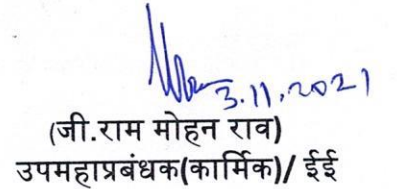 3.11.2021
(जी.राम मोहन राव)
उपमहाप्रबंधक(कार्मिक)/ ईई